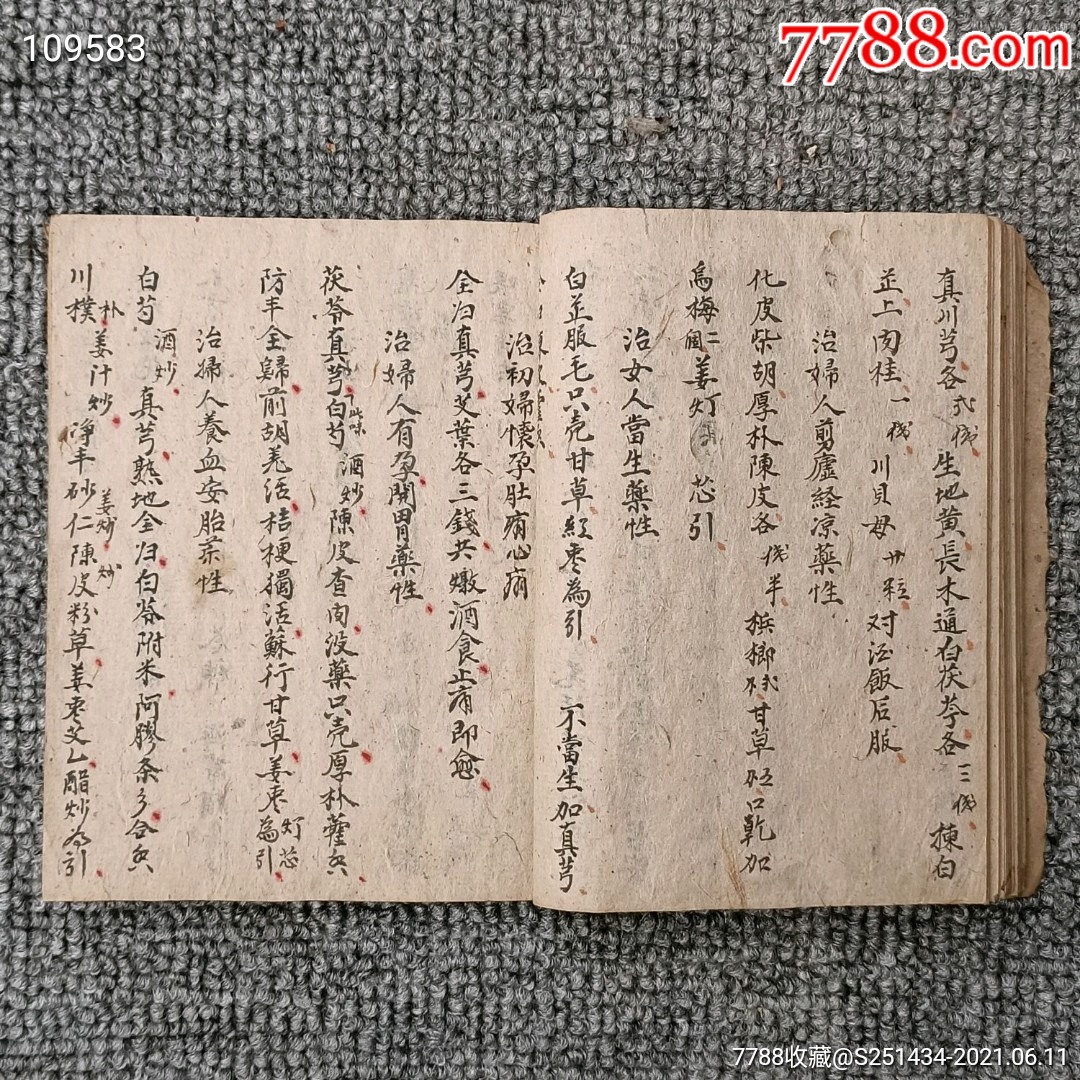 109583
7788.com
真川芎各弍伐生地黄長木通白茯苓各三伐揀白
芷上肉桂一伐川貝母廿粒对酒飯后服
治婦人剪廬経凉藥性
化皮柴胡厚朴陳皮各伐半梹榔甘草口乾加
烏梅二個姜灯芯引
治女人當生藥性
白芷服毛只壳甘草紅枣為引不當生加真芎
治初婦懷孕肚痛心痛
全归真芎艾葉各三錢共燉酒食止痛即愈
治婦人有孕開胃藥性
茯苓真芎白芍酒炒陳皮查肉没藥只壳厚朴藿香
防丰全歸前胡羌活桔梗獨活蘇行甘草姜枣灯芯為引
治婦人養血安胎茶性
白芍酒炒真芎熟地全归白苓附米阿膠条芩合香
川樸朴姜汁炒净丰砂仁姜炒陳皮炒粉草姜枣艾乙醋炒為引
7788收藏@S251434-2021.06.11